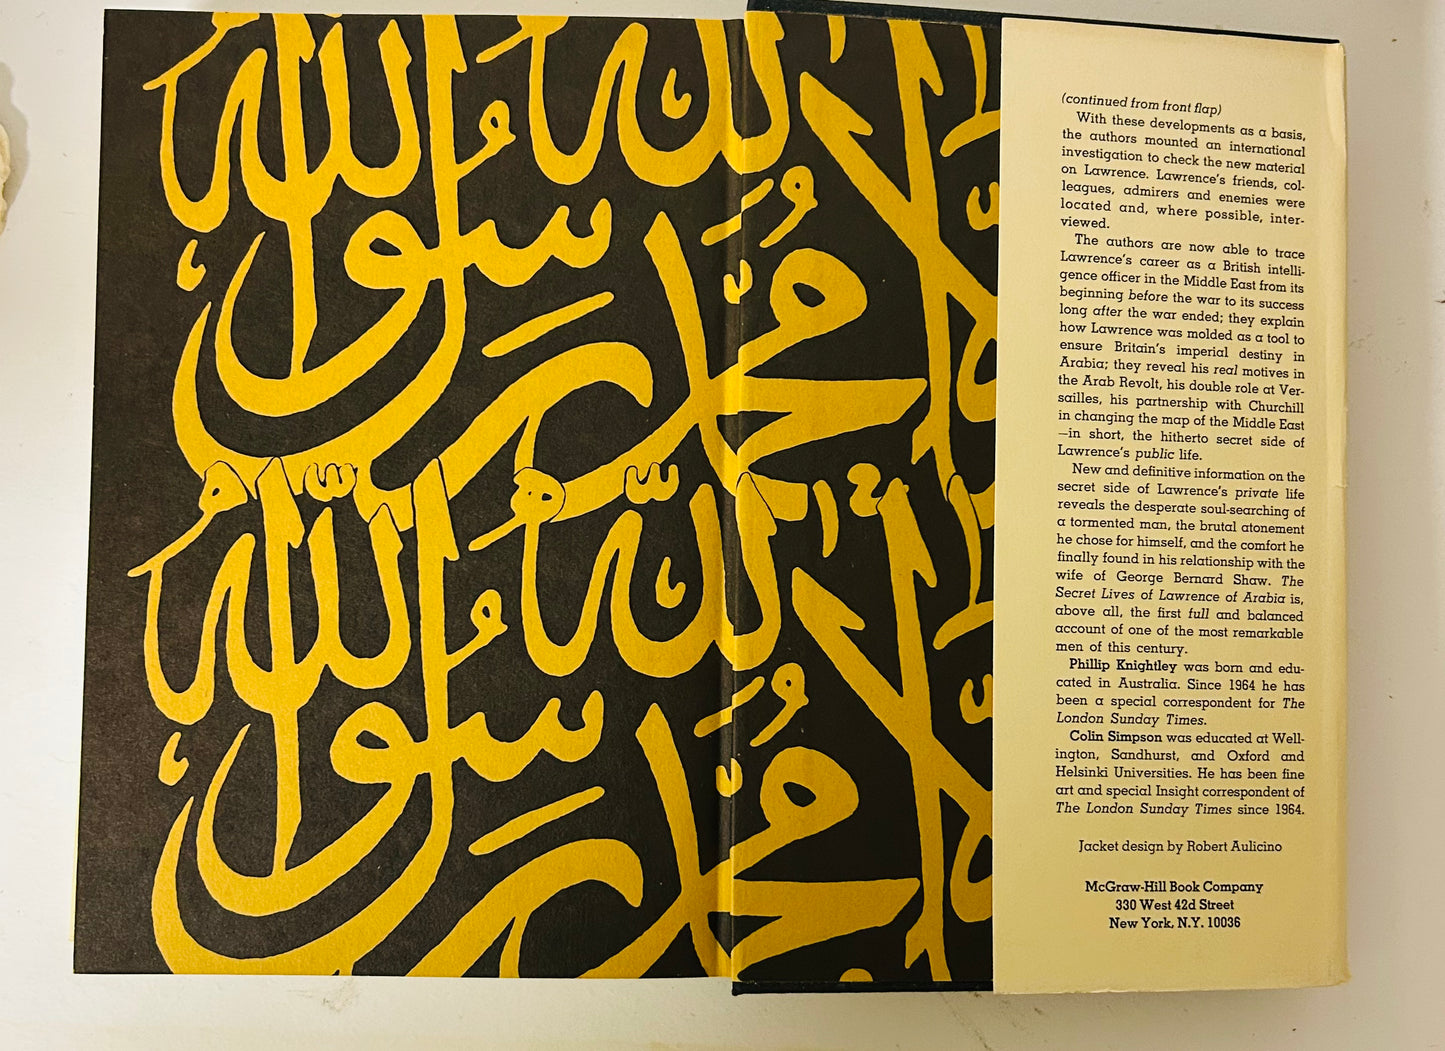 الله محمد رسول الله
الله محمد رسول الله
(continued from front flap)
With these developments as a basis,
the authors mounted an international
investigation to check the new material
on Lawrence. Lawrence's friends, col-
leagues, admirers and enemies were
located and, where possible, inter-
viewed.
The authors are now able to trace
Lawrence's career as a British intelli-
gence officer in the Middle East from its
beginning before the war to its success
long after the war ended; they explain
how Lawrence was molded as a tool to
ensure Britain's imperial destiny in
Arabia; they reveal his real motives in
the Arab Revolt, his double role at Ver-
sailles, his partnership with Churchill
in changing the map of the Middle East
—in short, the hitherto secret side of
Lawrence's public life.
New and definitive information on the
secret side of Lawrence's private life
reveals the desperate soul-searching of
a tormented man, the brutal atonement
he chose for himself, and the comfort he
finally found in his relationship with the
wife of George Bernard Shaw. The
Secret Lives of Lawrence of Arabia is,
above all, the first full and balanced
account of one of the most remarkable
men of this century.
Phillip Knightley was born and edu-
cated in Australia. Since 1964 he has
been a special correspondent for The
London Sunday Times.
Colin Simpson was educated at Well-
ington, Sandhurst, and Oxford and
Helsinki Universities. He has been fine
art and special Insight correspondent of
The London Sunday Times since 1964.
Jacket design by Robert Aulicino
McGraw-Hill Book Company
330 West 42d Street
New York, N.Y. 10036